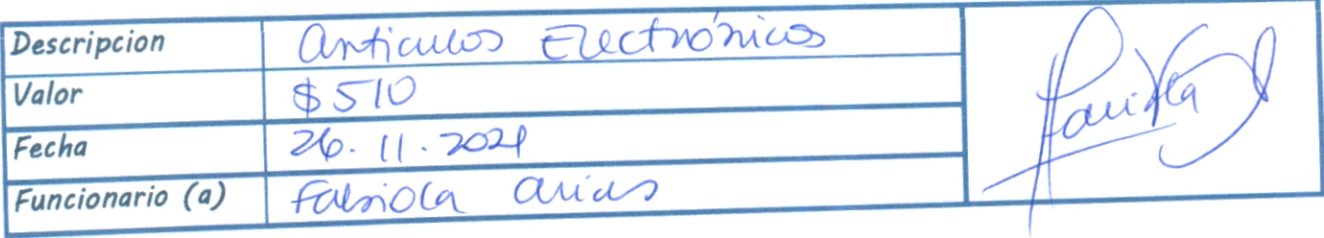 Descripcion Articulos Electrónicos
Valor $510
Fecha 26.11.2021
Funcionario (a) Fabiola Arias